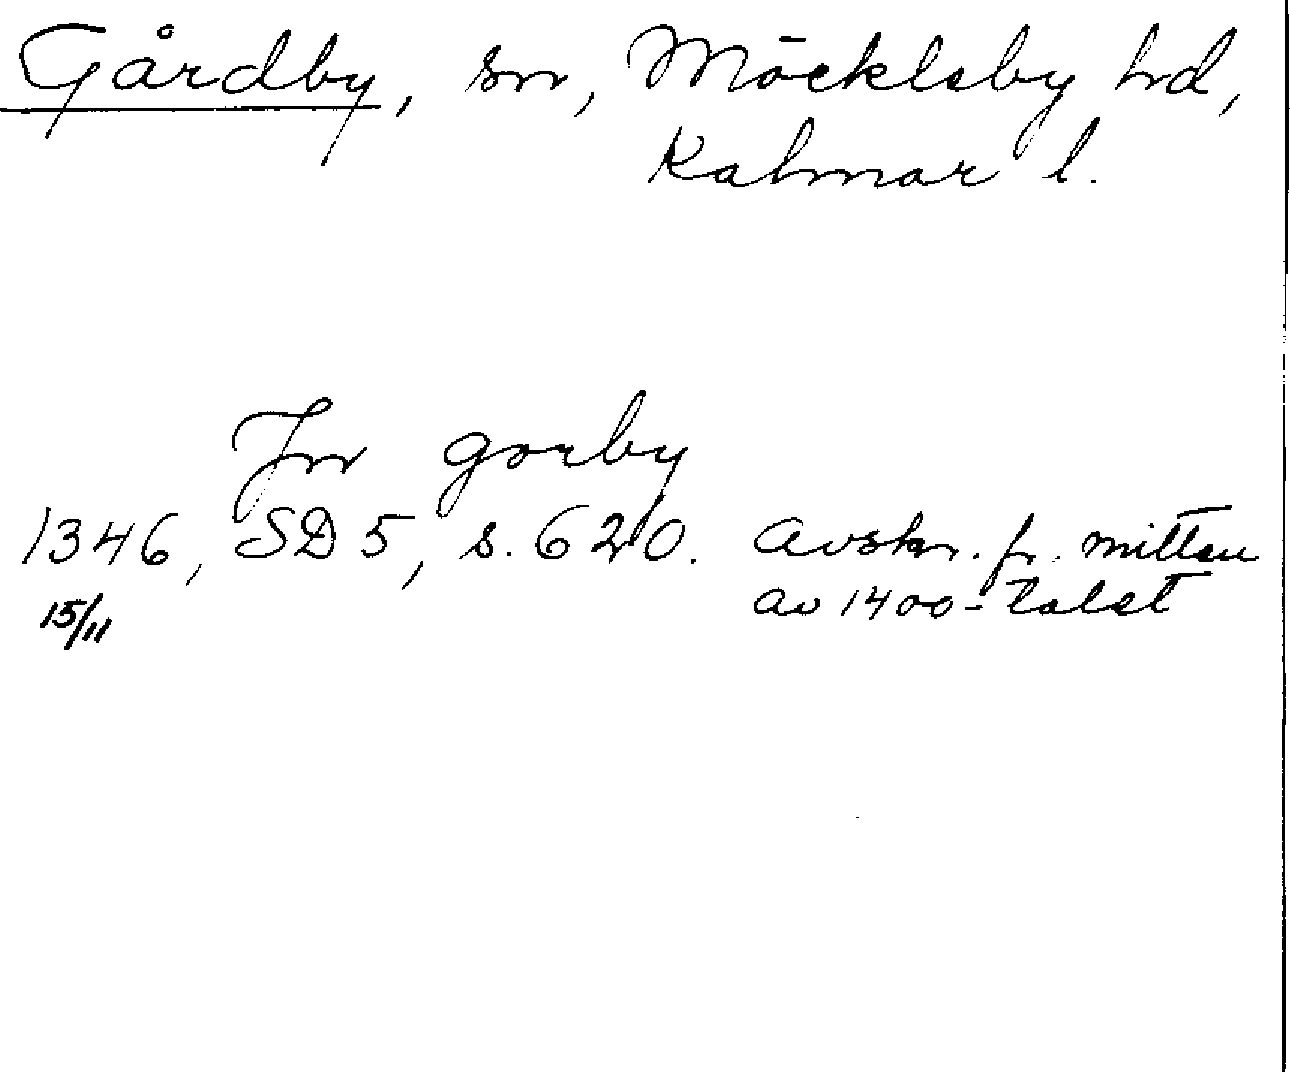 Gårdby, sn, Möcklеby hd,
Kalmar l.
Jn gorby
1346, SD 5, s. 620. Avskr. fr. mitten
15/11 av 1400-talet